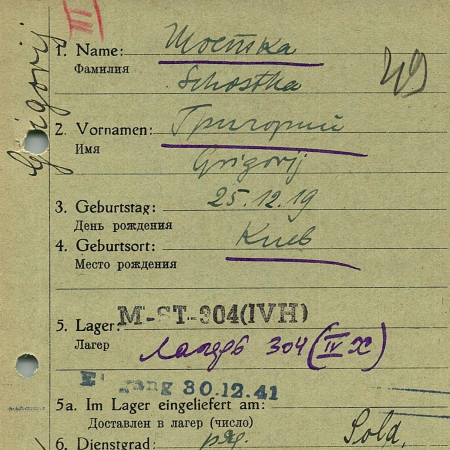 III
Grigorij
1. Name: Шостка
Фамилия
Schostka
49
2. Vornamen: Григорий
Имя
Grigorij
3. Geburtstag: 25.12.19
День рождения
4. Geburtsort: Киев
Место рождения
M-ST-304(IVH)
5. Lager:
Лагерь 304 (IV Х)
Лагер
30.12.41
5a. Im Lager eingeliefert am:
Доставлен в лагер (число)
6. Dienstgrad: ряд. Sold.